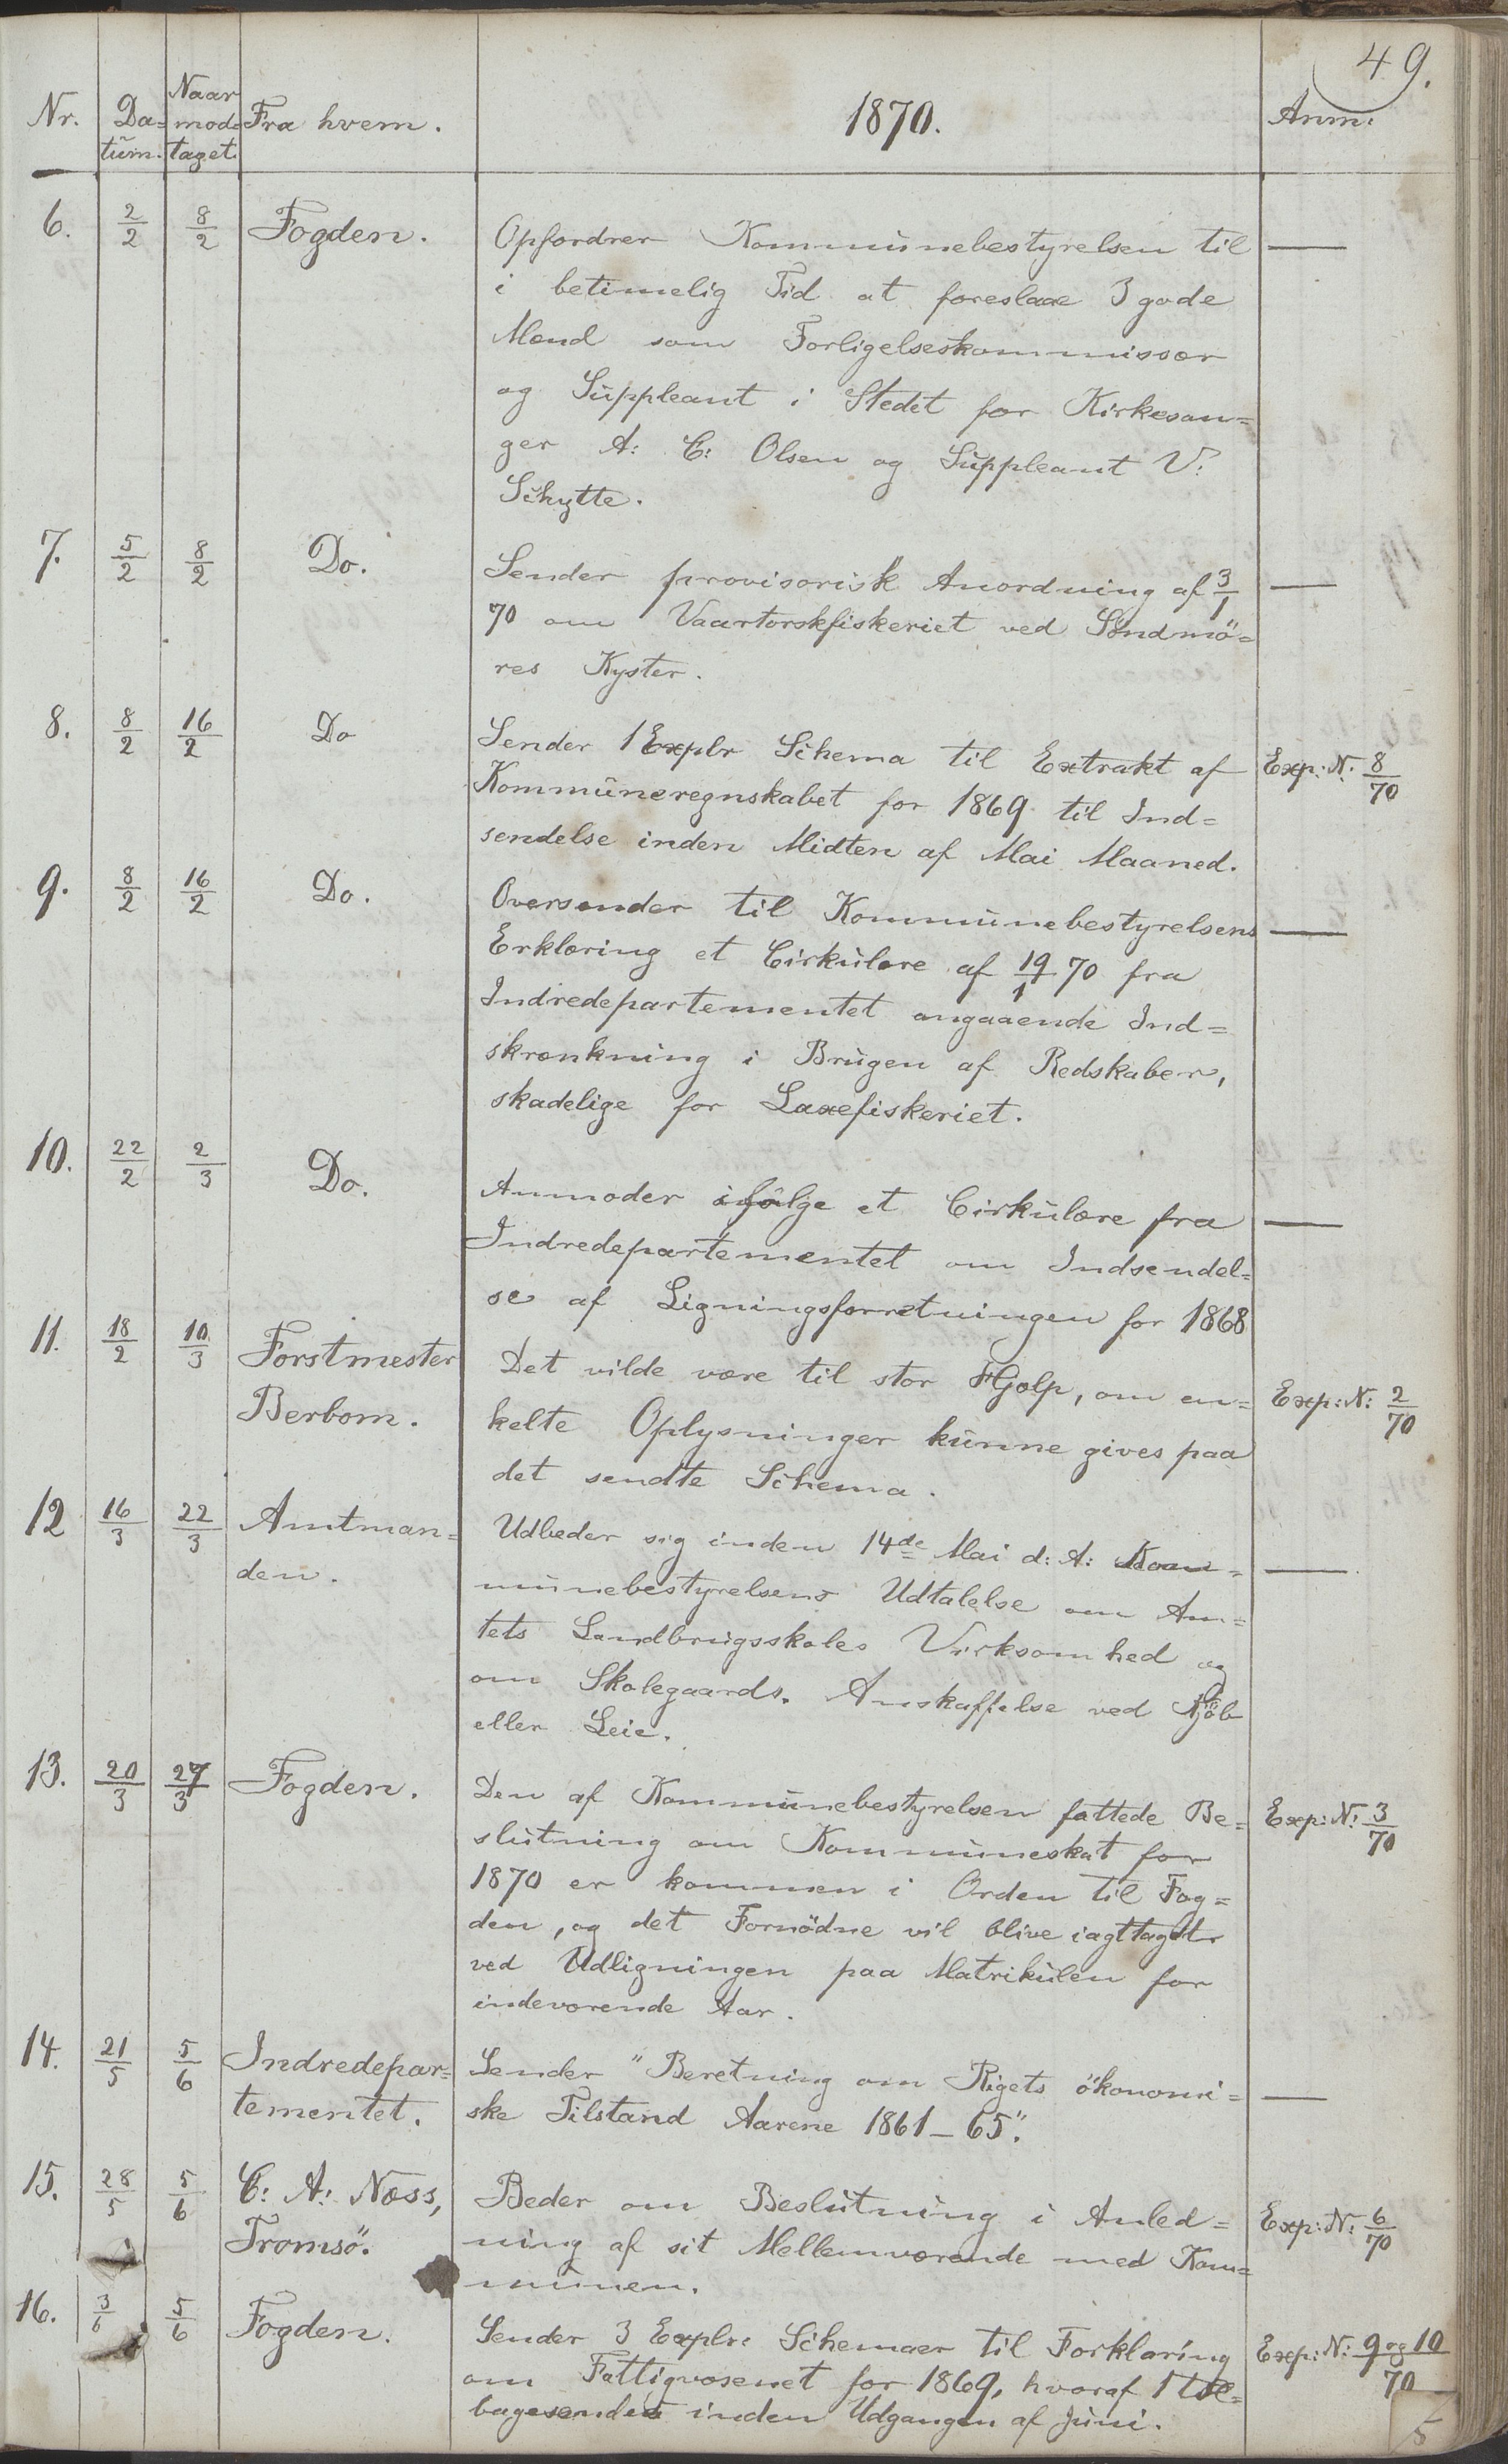 49.
Nr. Da= Naar Fra hvem. 1870. Anm:
tum. mod= taget.
6. 2/2 8/2 Fogden. Opfordrer Kommunebestyrelsen til —
i betimelig Tid at foreslaae 3 gode
Mænd som Forligelseskommissær
og Suppleant i Stedet for Kirkesan=
ger A: C: Olsen og Suppleant V:
Schytte.
7. 5/2 8/2 Do. Sender provisorisk Anordning af 3/1 —
70 om Vaartorskfiskeriet ved Söndmö=
res Kyster.
8. 8/2 16/2 Do Sender 1 Explr Schema til Extrakt af Exp: N: 8/70
Kommuneregnskabet for 1869 til Ind=
sendelse inden Midten af Mai Maaned.
9. 8/2 16/2 Do. Oversender til Kommunebestyrelsens —
Erklæring et Cirkulære af 19/1 70 fra
Indredepartementet angaaende Ind=
skrænkning i Brugen af Redskaber,
skadelige for Laxefiskeriet.
10. 22/2 2/3 Do. Anmoder ifölge et Cirkulære fra —
Indredepartementet om Indsendel=
se af Ligningsforretningen for 1868
11. 18/2 10/3 Forstmester Det vilde være til stor Hjælp, om en= Exp: N: 2/70
Berbom. kelte Oplysninger kunne gives paa
det sendte Schema.
12 16/3 22/3 Amtman= Udbeder sig inden 14de Mai d: A: Kom= —
den. munebestyrelsens Udtalelse om Am=
tets Landbrugsskoles Virksomhed og
om Skolegaards. Anskaffelse ved Kjöb
eller Leie.
13. 20/3 27/3 Fogden. Den af Kommunebestyrelsen fattede Be= Exp: N: 3/70
slutning om Kommuneskat for
1870 er kommen i Orden til Fog=
den, og det Fornödne vil blive iagttaget
ved Udligningen paa Matrikulen for
indeværende Aar.
14. 21/5 5/6 Indredepar= Sender "Beretning om Rigets ökonomi= —
tementet. ske Tilstand Aarene 1861–65".
15. 28/5 5/6 C: A: Næss, Beder om Beslutning i Anled= Exp: N: 6/70
Tromsö. ning af sit Mellemværende med Kom=
munen.
16. 3/6 5/6 Fogden. Sender 3 Explr: Schemaer til Forklaring Exp: N: 9 og 10/70
om Fattigvæsenet for 1869, hvoraf 1 til=
bagesendes inden Udgangen af Juni.
5